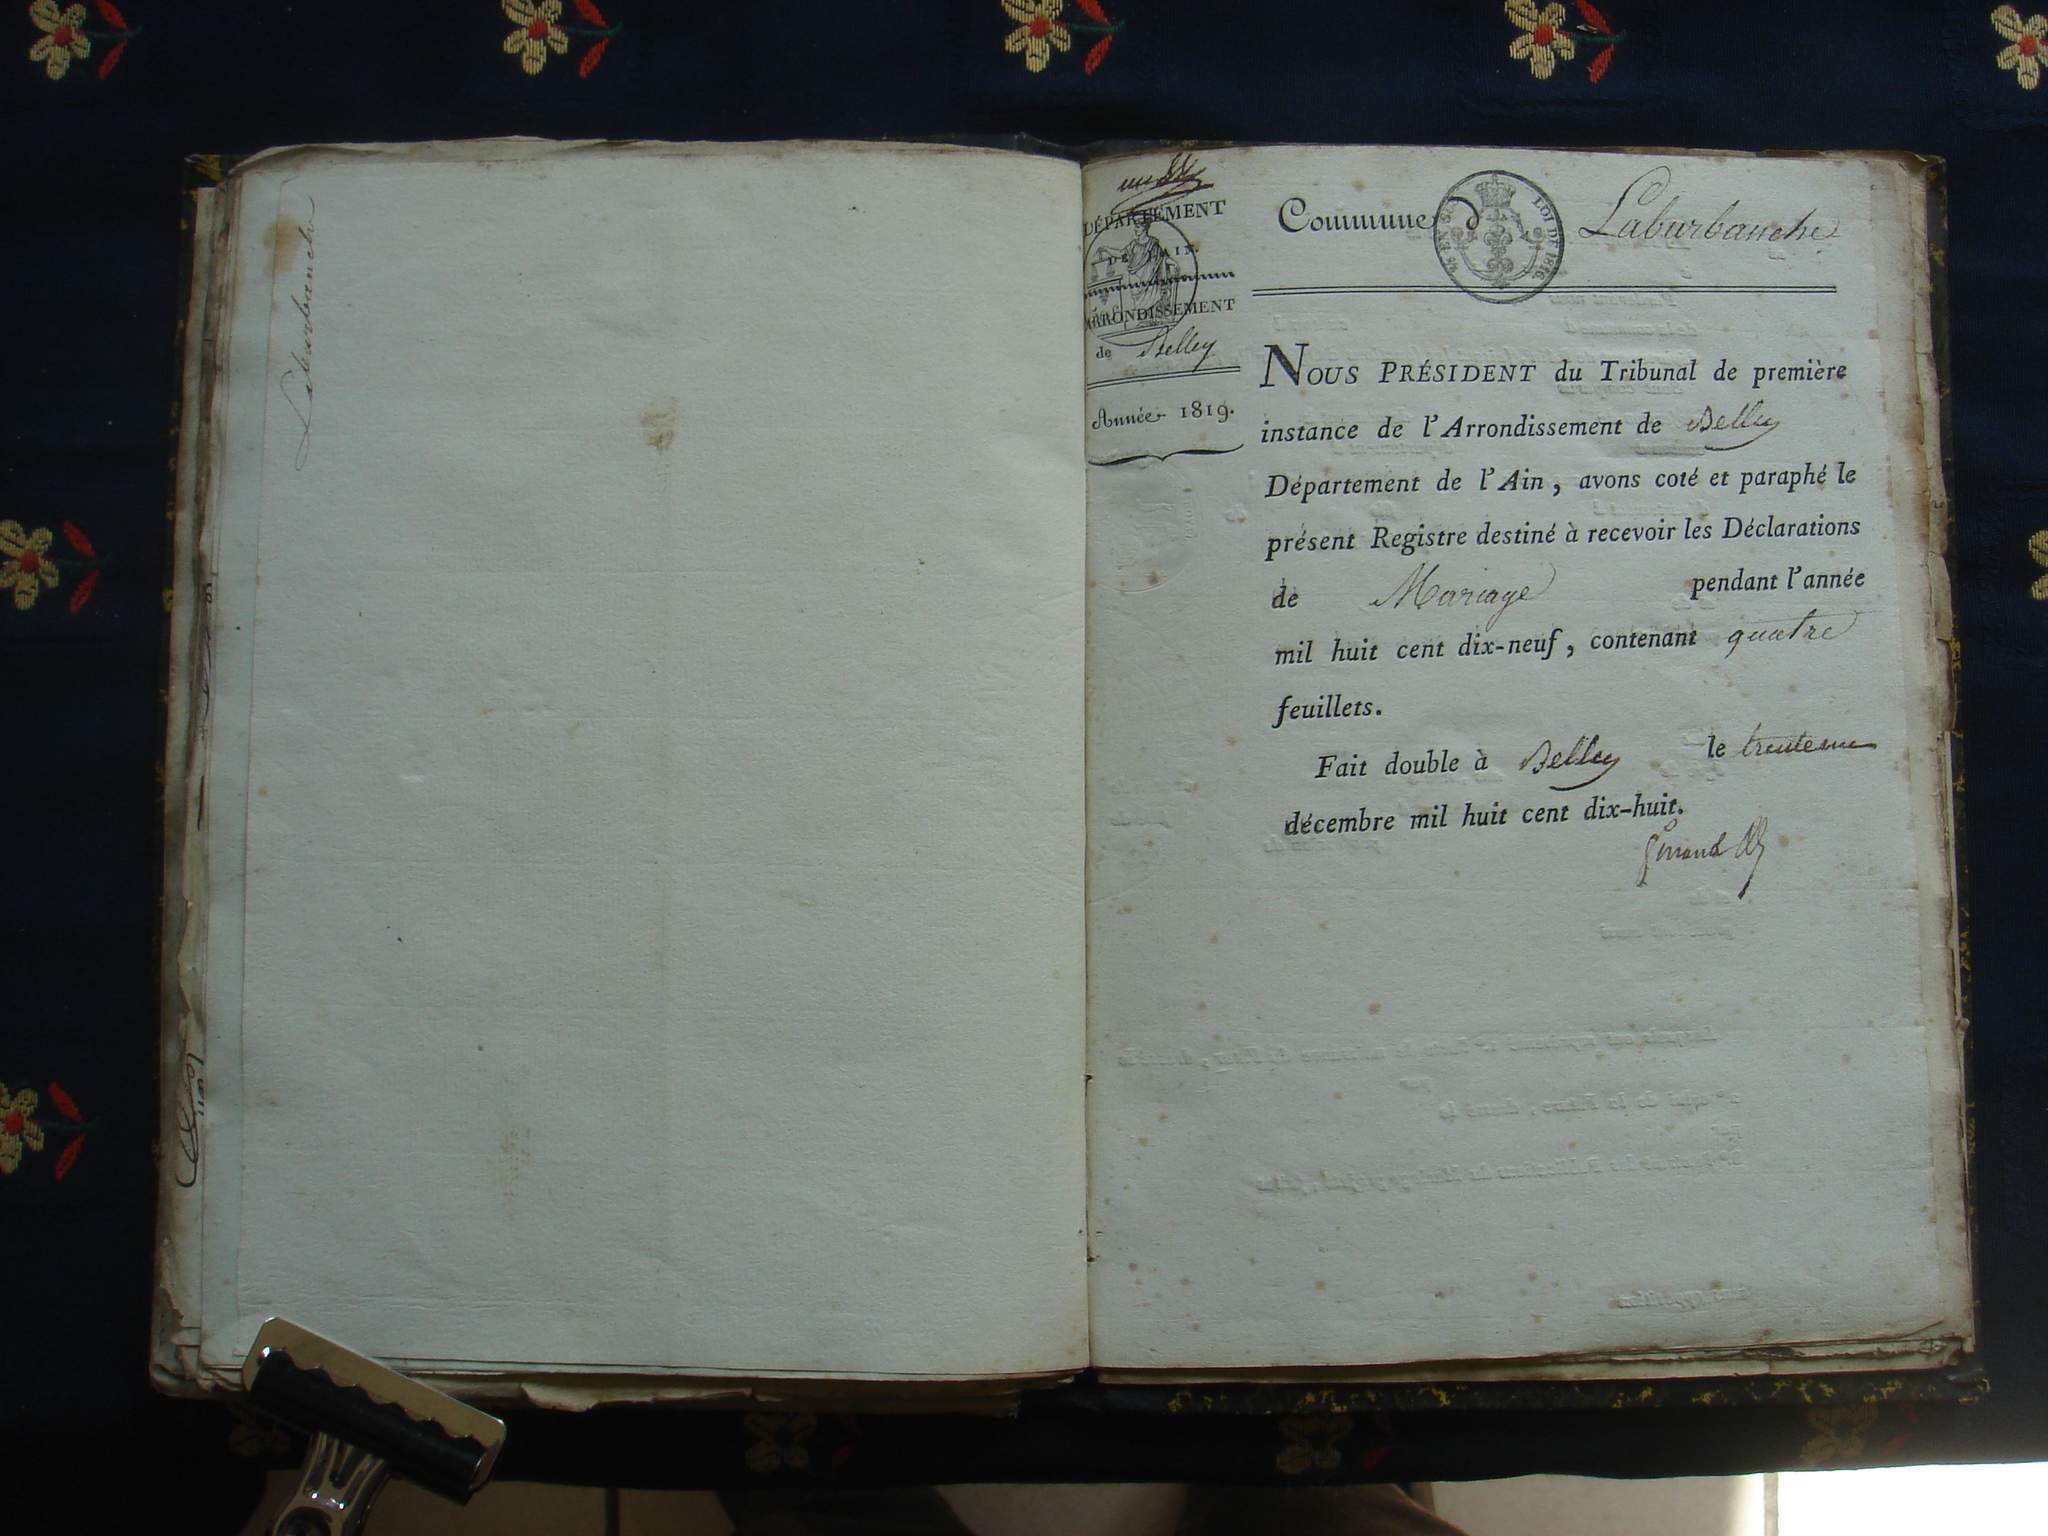 Laburbanche
DÉPARTEMENT
DE L'AIN.
ARRONDISSEMENT
de Belley
Année 1819.
Commune d Laburbanche
EN SUS
LOI DE 1816.
NOUS PRÉSIDENT du Tribunal de première
instance de l'Arrondissement de Belley
Département de l'Ain, avons coté et paraphé le
présent Registre destiné à recevoir les Déclarations
de Mariage pendant l'année
mil huit cent dix-neuf, contenant quatre
feuillets.
Fait double à Belley le trente un
décembre mil huit cent dix-huit.